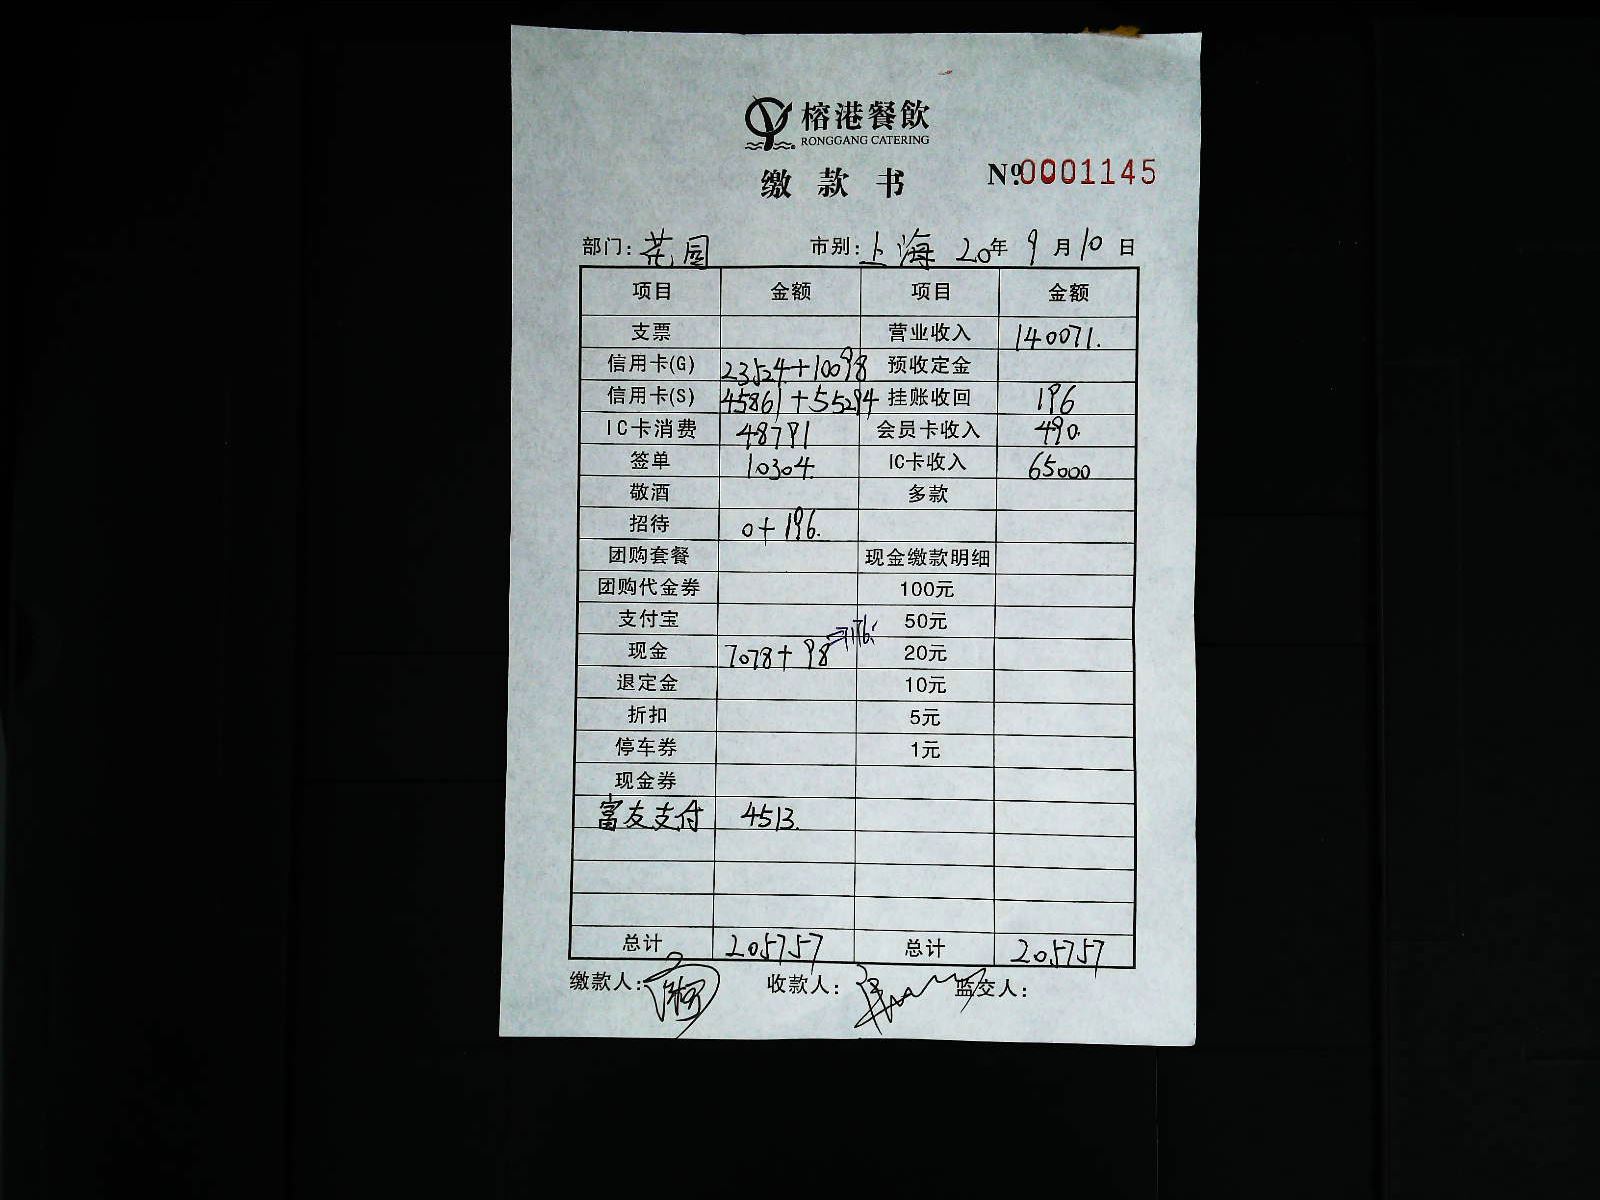 榕港餐飲
RONGGANG CATERING
缴款书 №0001145
部门: 花园 市别: 上海 20年 9月10日
项目 金额 项目 金额
支票 营业收入 140071.
信用卡(G) 23524+10098 预收定金
信用卡(S) 45861+55294 挂账收回 196
IC卡消费 48791 会员卡收入 490.
签单 10304. IC卡收入 65000
敬酒 多款
招待 0+196.
团购套餐 现金缴款明细
团购代金券 100元
支付宝 50元
现金 7078+98 →7176. 20元
退定金 10元
折扣 5元
停车券 1元
现金券
富友支付 4513.
总计 205757 总计 205757
缴款人: 收款人: 监交人: